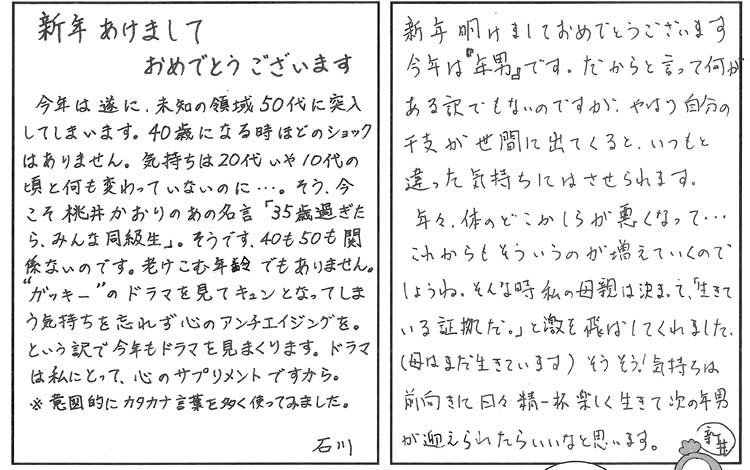 新年 あけまして
おめでとうございます
今年は遂に、未知の領域50代に突入
してしまいます。40歳になる時ほどのショック
はありません。気持ちは20代いや10代の
頃と何も変わっていないのに…。そう、今
こそ桃井かおりのあの名言「35歳過ぎた
ら、みんな同級生」。そうです、40も50も関
係ないのです。老けこむ年齢でもありません。
“ガッキー”のドラマを見てキュンとなってしま
う気持ちを忘れず心のアンチエイジングを。
という訳で今年もドラマを見まくります。ドラマ
は私にとって、心のサプリメントですから。
※意図的にカタカナ言葉を多く使ってみました。
石川
新年明けましておめでとうございます
今年は『年男』です。だからと言って何が
ある訳でもないのですが、やはり自分の
干支が世間に出てくると、いつもと
違った気持ちにはさせられます。
年々、体のどこかしらが悪くなって…
これからもそういうのが増えていくので
しょうね。そんな時私の母親は決まって、「生きて
いる証拠だ。」と激を飛ばしてくれました。
(母はまだ生きています) そうそう!気持ちは
前向きに日々精一杯楽しく生きて次の年男
が迎えられたらいいなと思います。
新井